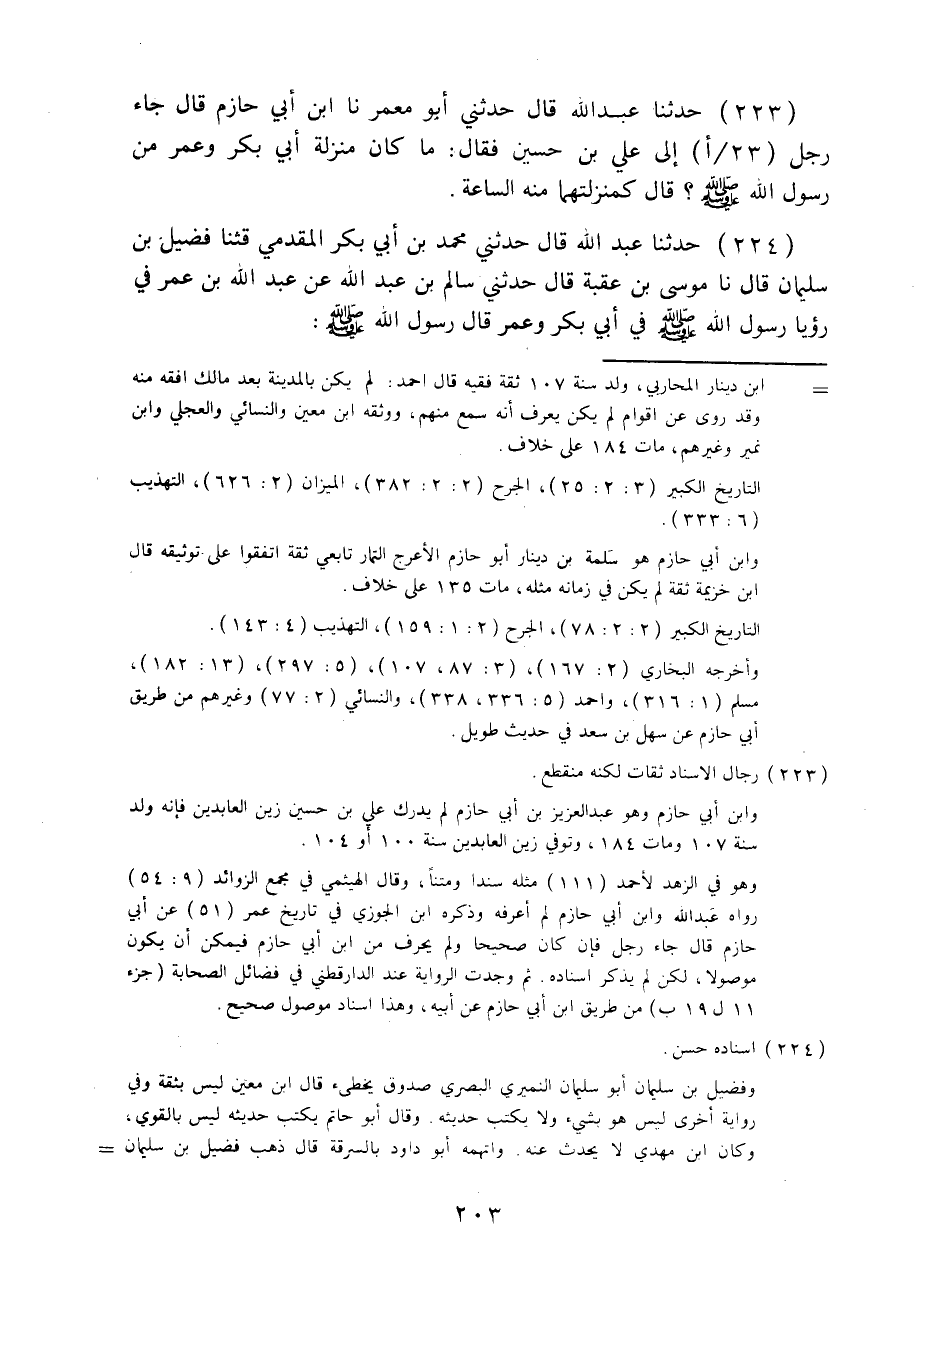 (٢٢٣) حدثنا عبـدالله قال حدثني أبو معمر نا ابن أبي حازم قال جاء
رجل (٢٣/أ) إلى علي بن حسين فقال: ما كان منزلة أبي بكر وعمر من
رسول الله ﷺ ؟ قال كمنزلتهما منه الساعة .
(٢٢٤) حدثنا عبد الله قال حدثني محمد بن أبي بكر المقدمي قثنا فضيل بن
سليمان قال نا موسى بن عقبة قال حدثني سالم بن عبد الله عن عبد الله بن عمر في
رؤيا رسول الله ﷺ في أبي بكر وعمر قال رسول الله ﷺ :
= ابن دينار المحاربي، ولد سنة ١٠٧ ثقة فقيه قال احمد: لم يكن بالمدينة بعد مالك افقه منه
وقد روى عن اقوام لم يكن يعرف أنه سمع منهم، ووثقه ابن معين والنسائي والعجلي وابن
نمير وغيرهم، مات ١٨٤ على خلاف.
التاريخ الكبير (٣ : ٢ : ٢٥)، الجرح (٢ : ٢ : ٣٨٢)، الميزان (٢ : ٦٢٦)، التهذيب
(٦ : ٣٣٣).
وابن أبي حازم هو سَلمة بن دينار أبو حازم الأعرج التمار تابعي ثقة اتفقوا على توثيقه قال
ابن خزيمة ثقة لم يكن في زمانه مثله، مات ١٣٥ على خلاف.
التاريخ الكبير (٢ : ٢ : ٧٨)، الجرح (٢ : ١ : ١٥٩)، التهذيب (٤ : ١٤٣).
وأخرجه البخاري (٢ : ١٦٧)، (٣ : ٨٧، ١٠٧)، (٥ : ٢٩٧)، (١٣ : ١٨٢)،
مسلم (١ : ٣١٦)، واحمد (٥ : ٣٣٦، ٣٣٨)، والنسائي (٢ : ٧٧) وغيرهم من طريق
أبي حازم عن سهل بن سعد في حديث طويل.
(٢٢٣) رجال الاسناد ثقات لكنه منقطع.
وابن أبي حازم وهو عبدالعزيز بن أبي حازم لم يدرك علي بن حسين زين العابدين فإنه ولد
سنة ١٠٧ ومات ١٨٤، وتوفي زين العابدين سنة ١٠٠ أو ١٠٤.
وهو في الزهد لأحمد (١١١) مثله سندا ومتناً، وقال الهيثمي في مجمع الزوائد (٩ : ٥٤)
رواه عَبدالله وابن أبي حازم لم أعرفه وذكره ابن الجوزي في تاريخ عمر (٥١) عن أبي
حازم قال جاء رجل فإن كان صحيحا ولم يحرف من ابن أبي حازم فيمكن أن يكون
موصولا، لكن لم يذكر اسناده. ثم وجدت الرواية عند الدارقطني في فضائل الصحابة (جزء
١١ ل ١٩ ب) من طريق ابن أبي حازم عن أبيه، وهذا اسناد موصول صحيح.
(٢٢٤) اسناده حسن.
وفضيل بن سليمان أبو سليمان النميري البصري صدوق يخطىء قال ابن معين ليس بثقة وفي
رواية أخرى ليس هو بشيء ولا يكتب حديثه. وقال أبو حاتم يكتب حديثه ليس بالقوي،
وكان ابن مهدي لا يحدث عنه. واتهمه أبو داود بالسرقة قال ذهب فضيل بن سليمان =
٢٠٣